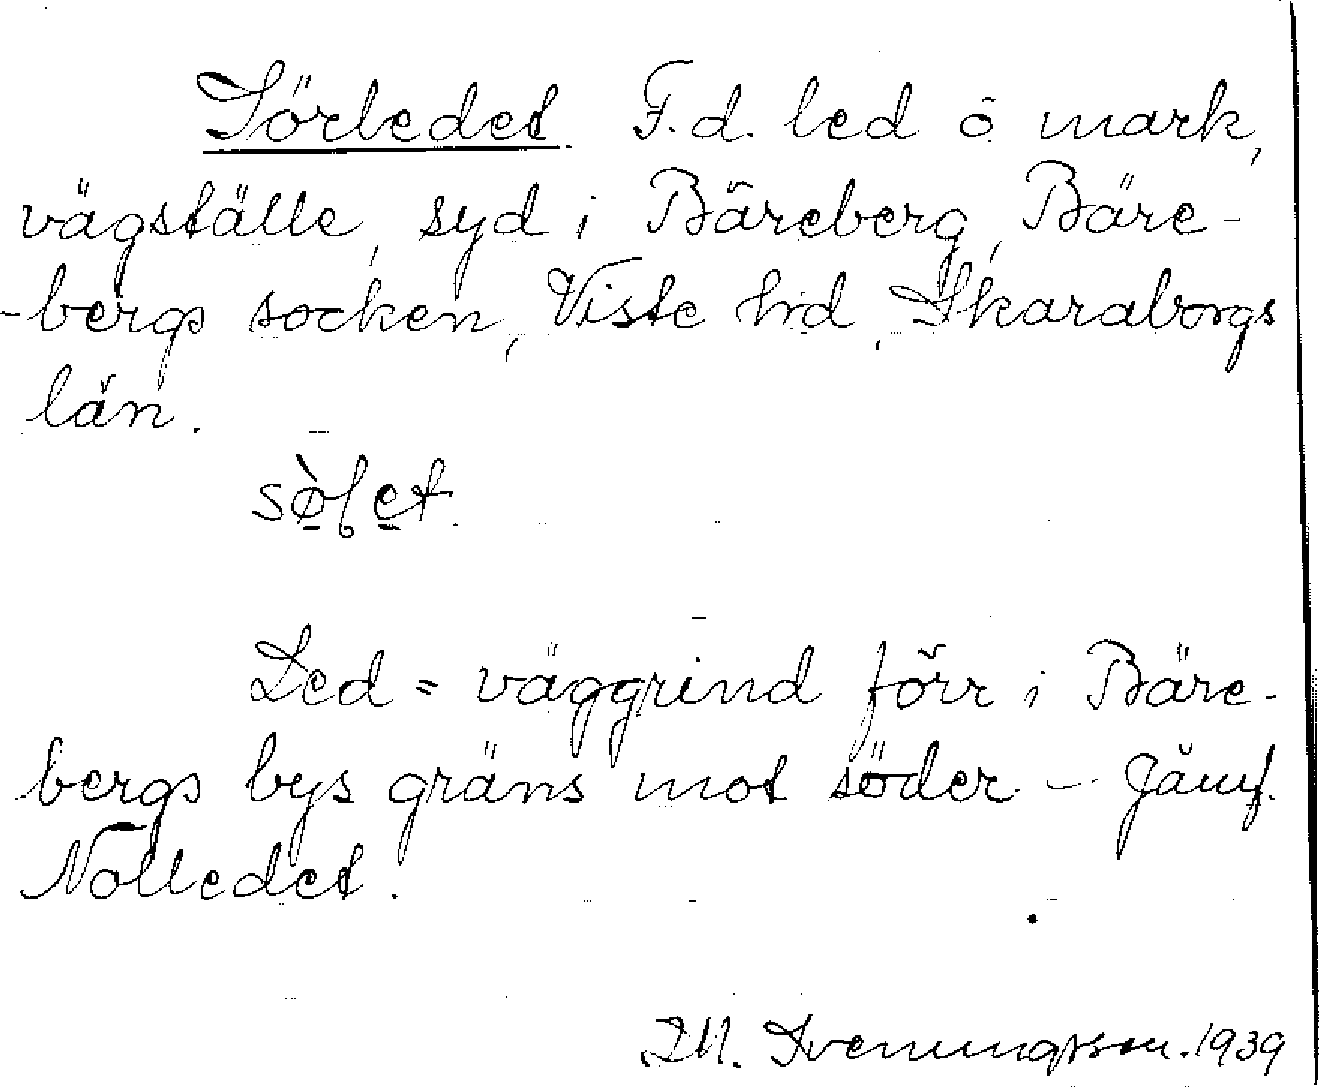 Sörledet. F.d. led ö mark,
vägställe, syd i Bäreberg, Bäre-
-bergs socken, Viste hrd, Skaraborgs
län.
Led = väggrind förr i Bäre-
bergs bys gräns mot söder. – Jämf.
Nolledet.
D.M. Svenungsson. 1939